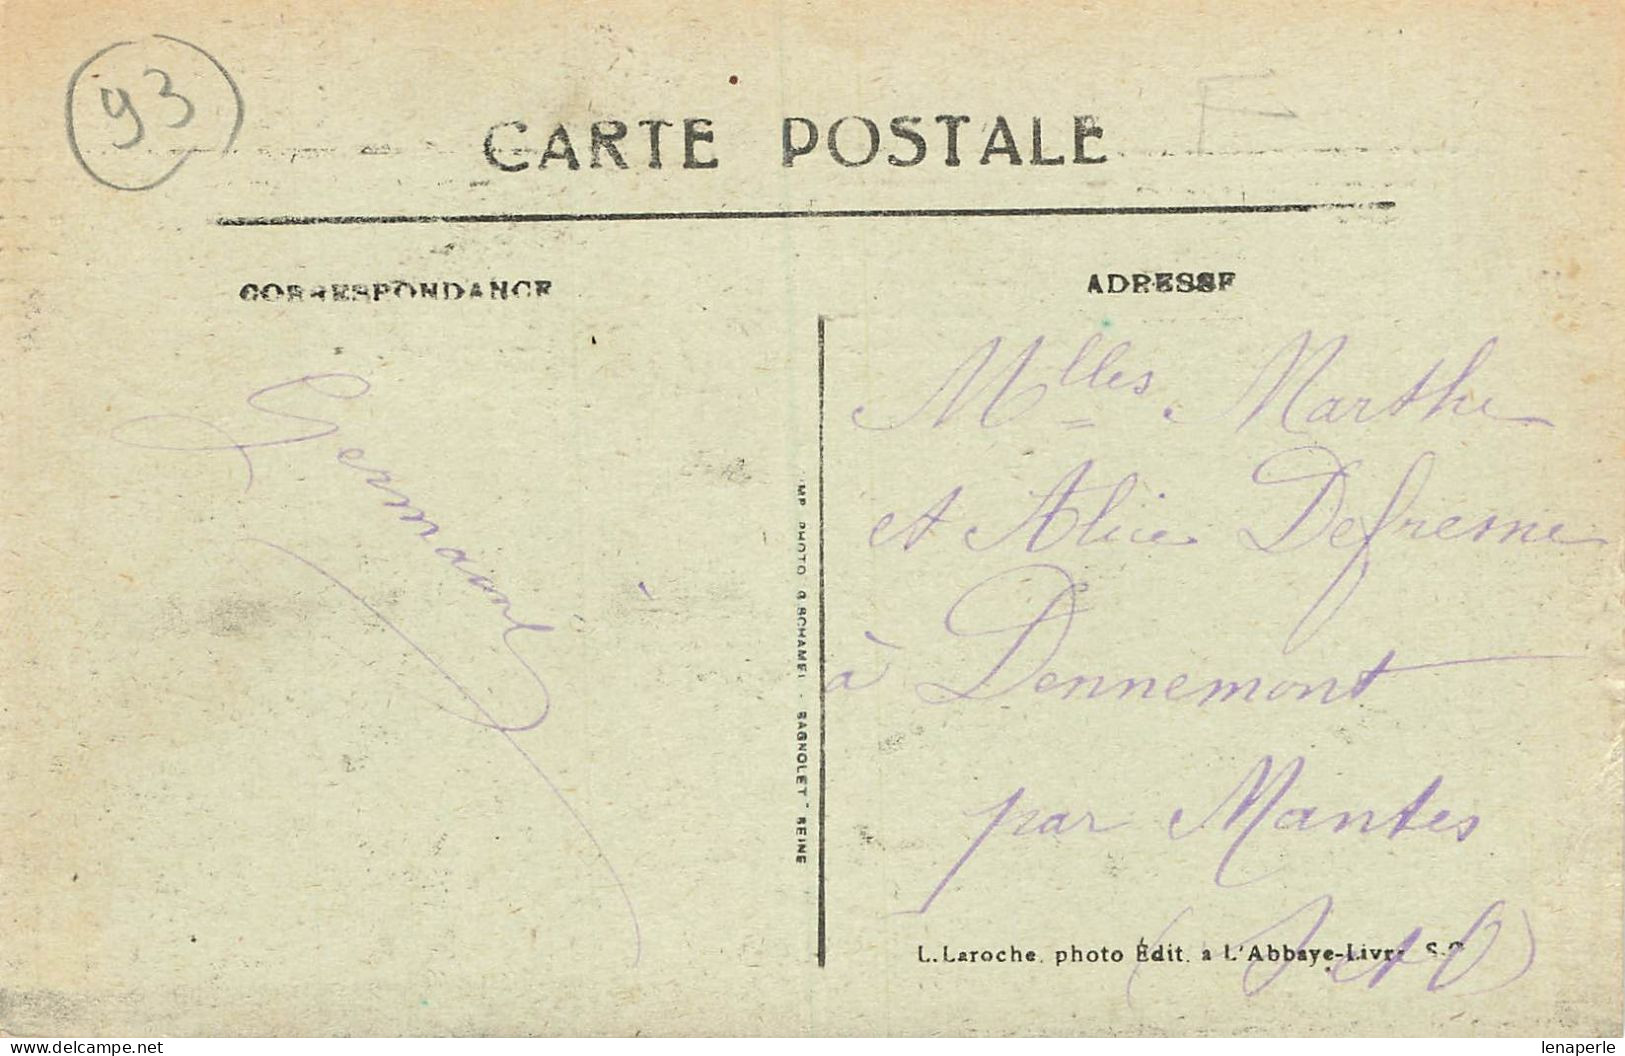 93
CARTE POSTALE
CORRESPONDANCE
ADRESSE
Germaine
Mlles Marthe
et Alice Defresne
à Dennemont
par Mantes
(S et O)
IMP. PHOTO G. SCHAMEL - BAGNOLET - SEINE
L. Laroche, photo Édit. a L'Abbaye-Livry S.O
lenaperle
delcampe.net